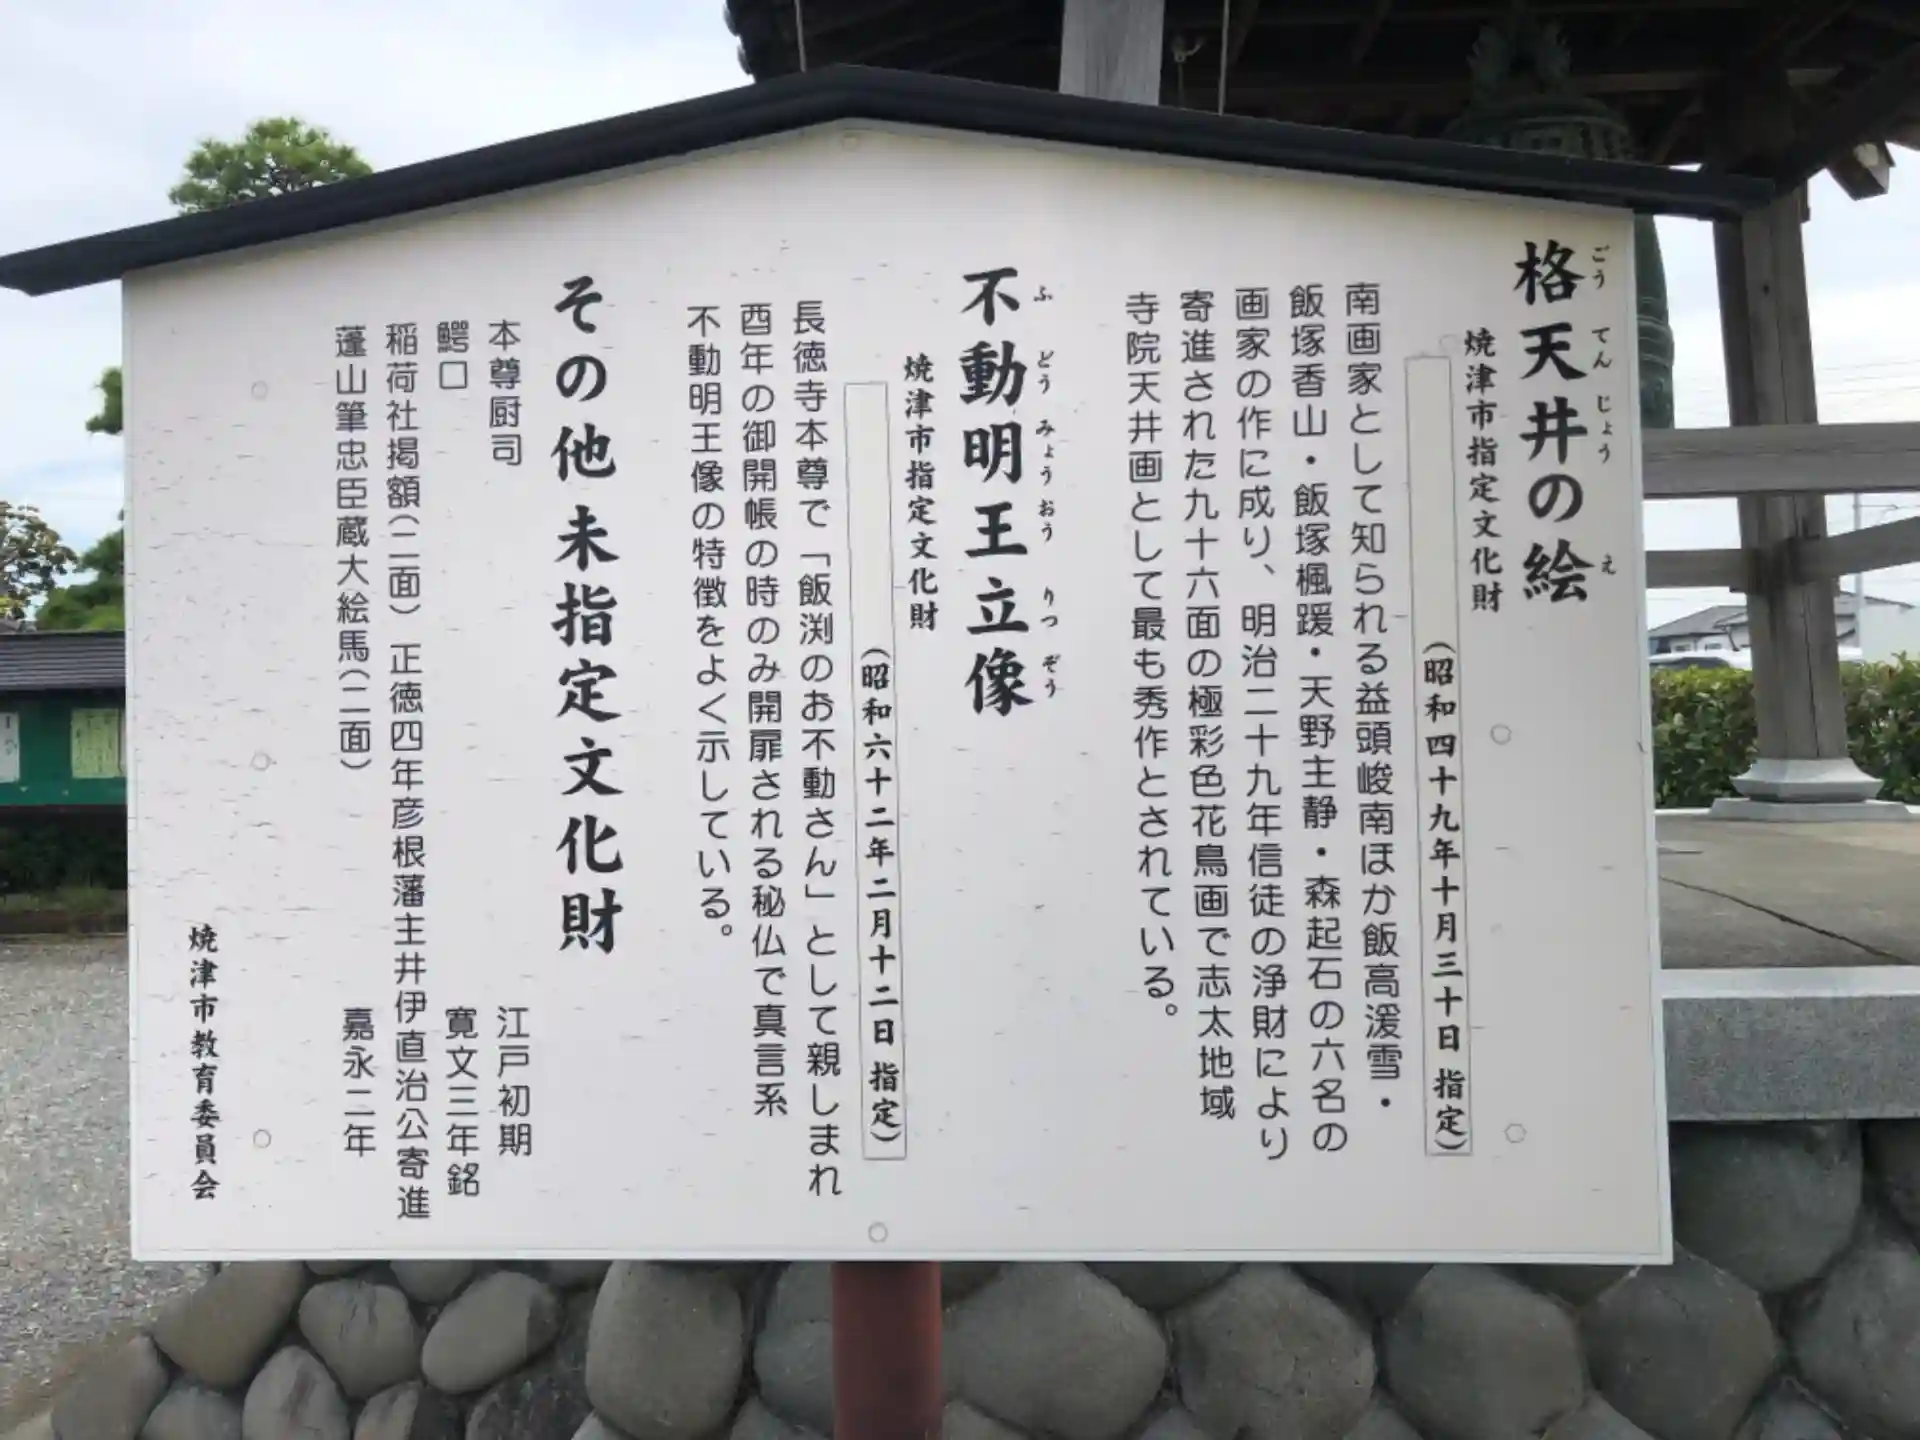 格天井の絵
ごうてんじょうえ
焼津市指定文化財
(昭和四十九年十月三十日指定)
南画家として知られる益頭峻南ほか飯高湲雪・
飯塚香山・飯塚楓踐・天野主静・森起石の六名の
画家の作に成り、明治二十九年信徒の浄財により
寄進された九十六面の極彩色花鳥画で志太地域
寺院天井画として最も秀作とされている。
不動明王立像
ふどうみょうおうりつぞう
焼津市指定文化財
(昭和六十二年二月十二日指定)
長徳寺本尊で「飯渕のお不動さん」として親しまれ
酉年の御開帳の時のみ開扉される秘仏で真言系
不動明王像の特徴をよく示している。
その他未指定文化財
本尊厨司 江戸初期
鰐口 寛文三年銘
稲荷社掲額(二面) 正徳四年彦根藩主井伊直治公寄進
蓬山筆忠臣蔵大絵馬(二面) 嘉永二年
焼津市教育委員会